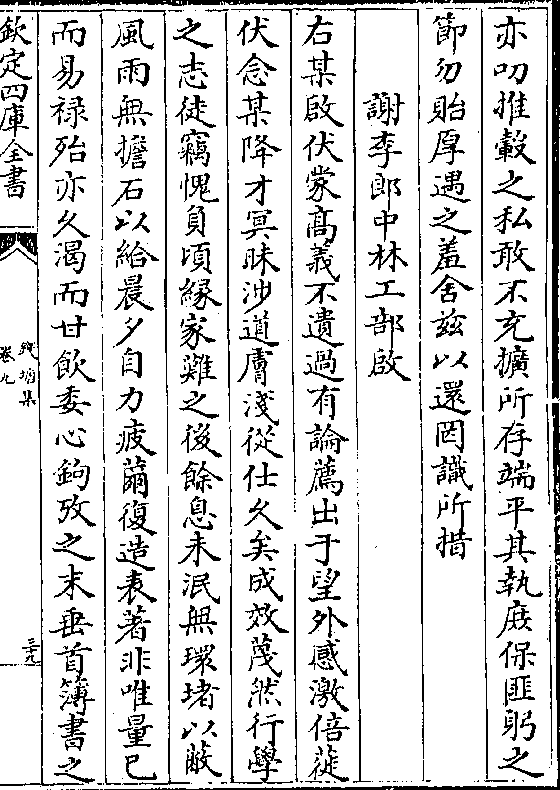 亦叨推轂之私敢不充擴所存端平其執庶保匪躬之
節勿貽厚遇之羞舍兹以還罔識所措
謝李郎中林工部啟
右某啟伏蒙髙義不遺過有論薦出于望外感激倍蓰
伏念某降才冥昧涉道膚淺從仕久矣成效蔑然行學
之志徒竊愧負頃縁家難之後餘息未泯無環堵以蔽
風雨無擔石以給晨夕自力疲薾復造表著非唯量已
而易禄殆亦久渴而甘飲委心鉤攷之末垂首簿書之
欽定四庫全書
錢塘集
卷九
三十九